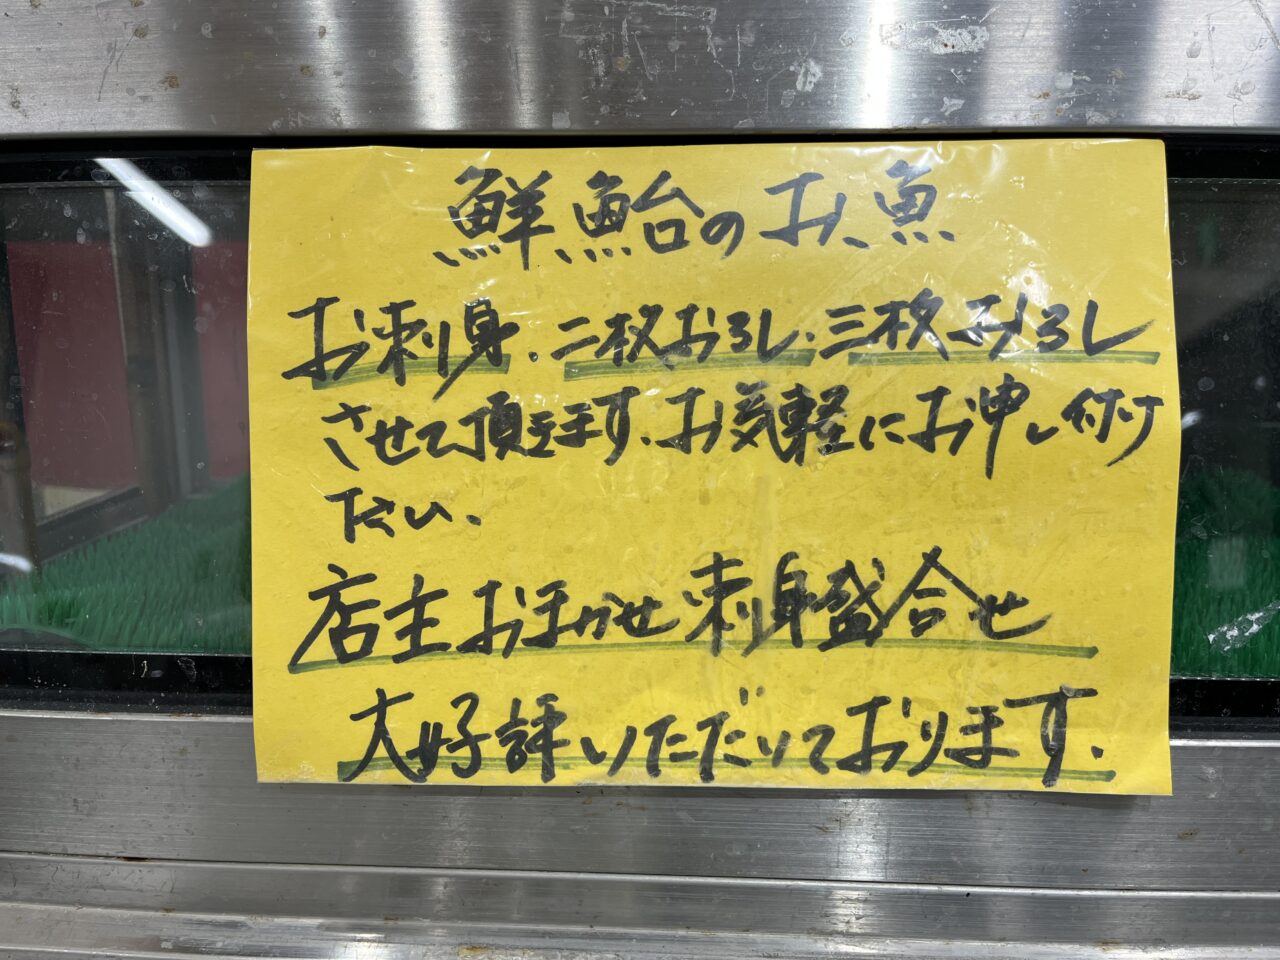 鮮鮐のお魚
お刺身、二枚おろし、三枚おろし
させて頂きます。お気軽にお申し付け
下さい。
店主おまかせ刺身盛合せ
大好評いただいております。